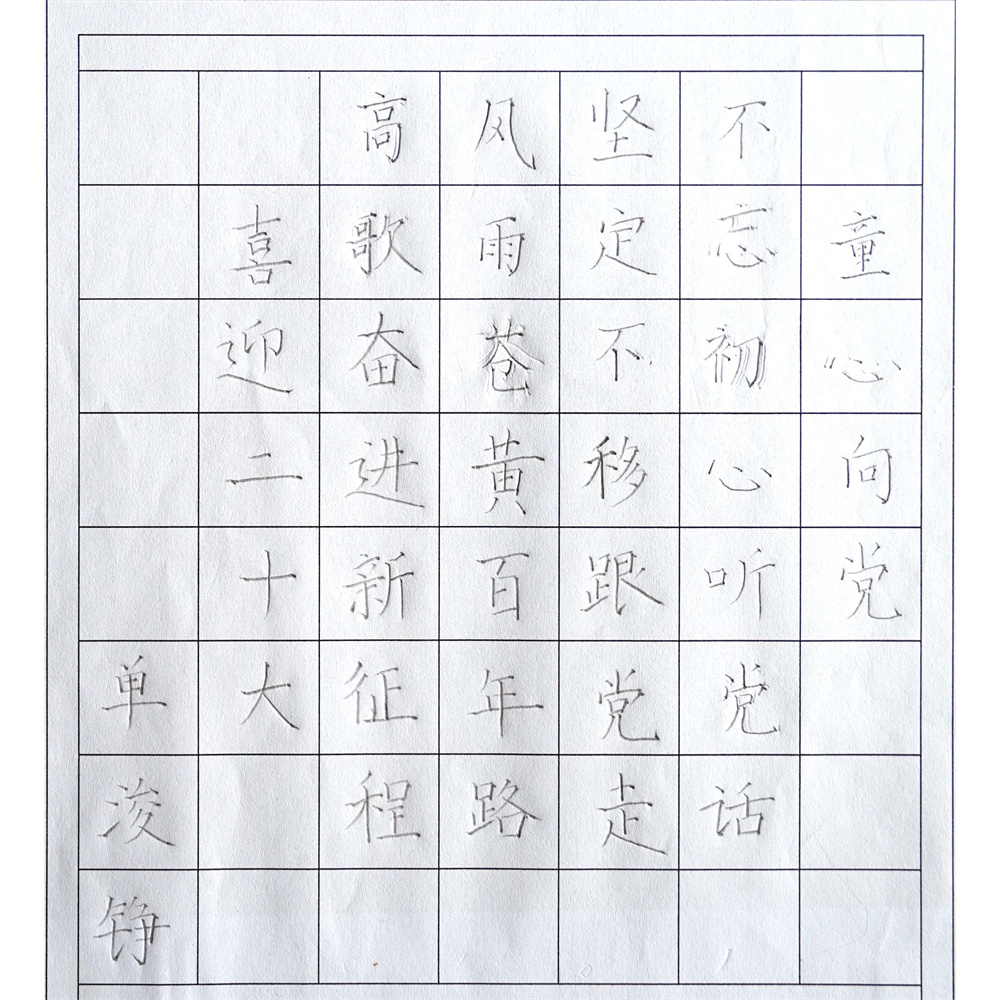 童心向党
不忘初心听党话
坚定不移跟党走
风雨苍黄百年路
高歌奋进新征程
喜迎二十大
单浚铮